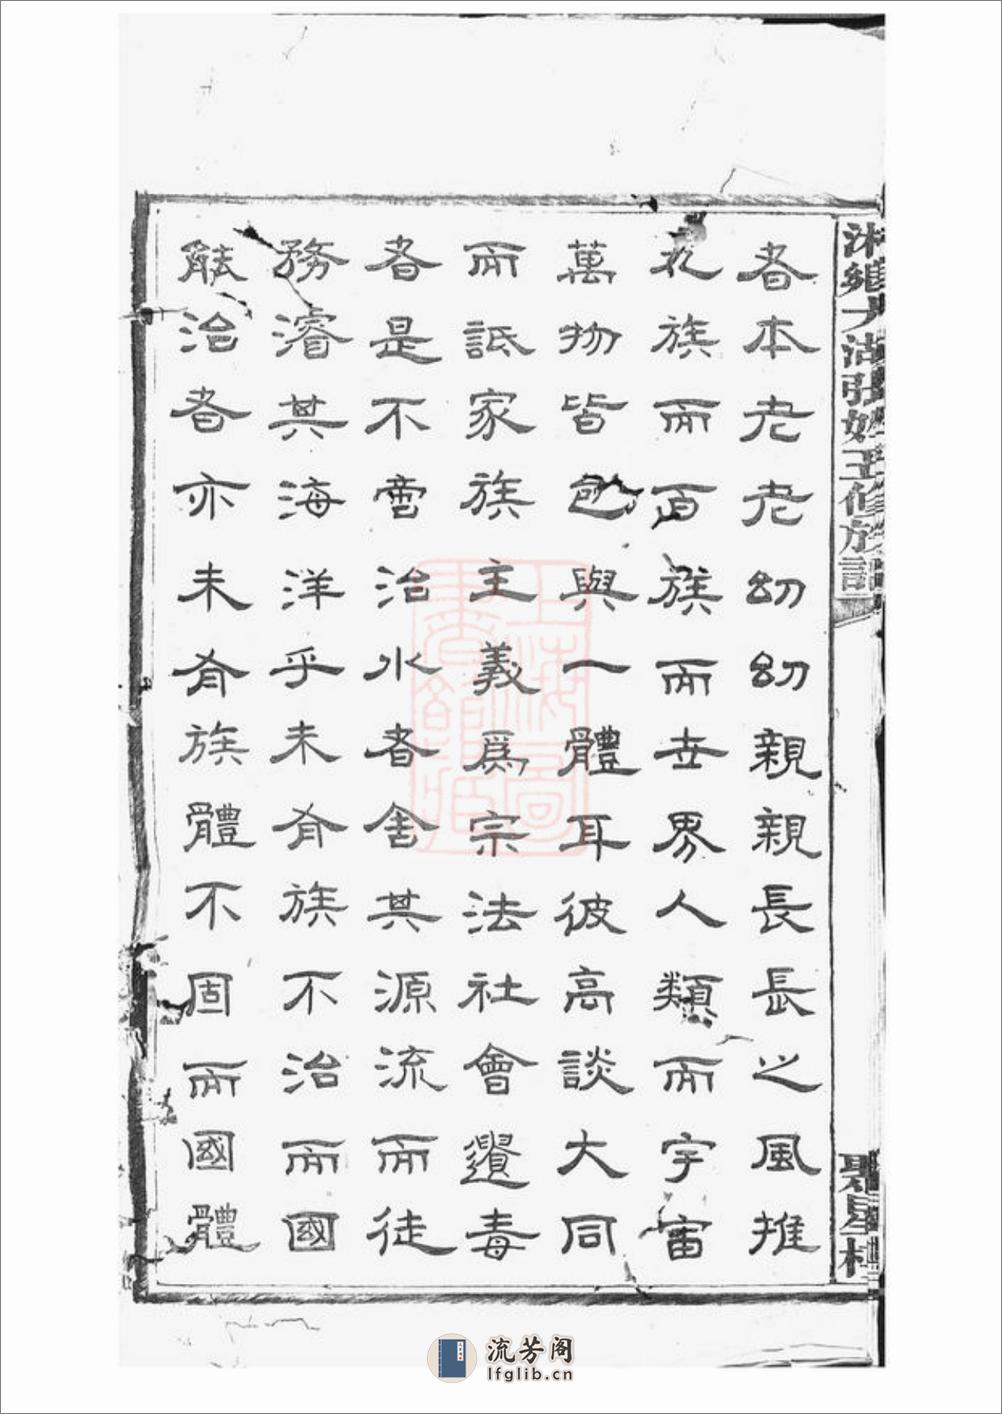 湘鄉大沽張姓五修族譜
聚星
者本老老幼幼親親長長之風推
九族而百族而世界人類而宇宙
萬物皆包與一體耳彼高談大同
而詆家族主義爲宗法社會遺毒
者是不啻治水者舍其源流而徒
務濬其海洋乎未有族不治而國
能治者亦未有族體不固而國體
上海圖書館藏
流芳阁
lfglib.cn